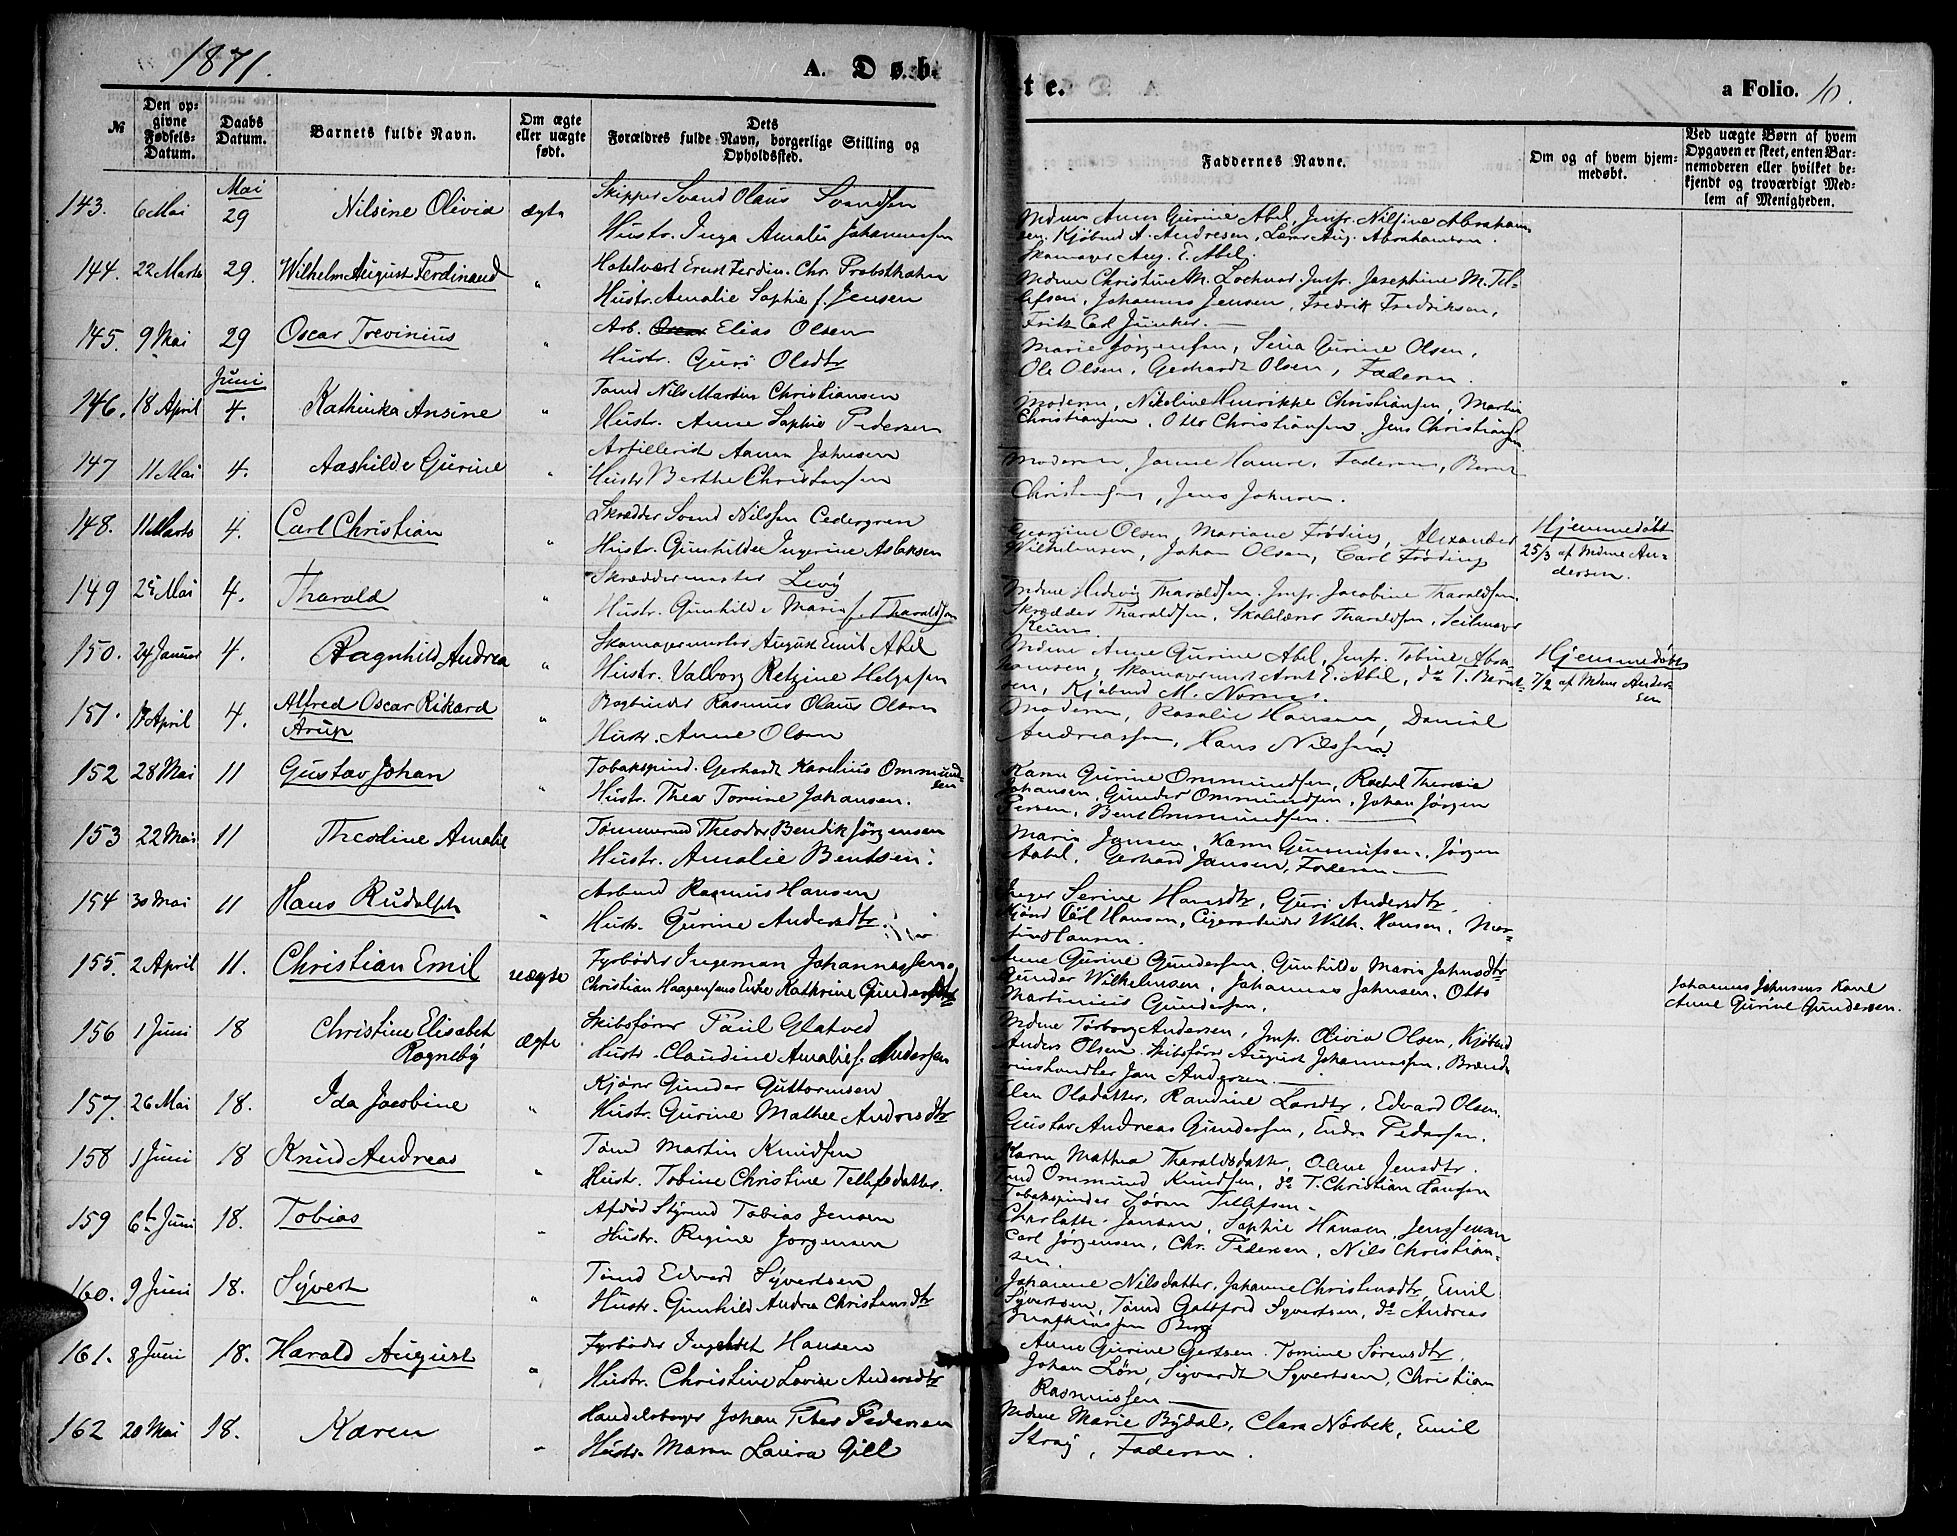 1871.
A. Døb-
te.
a Folio. 10.
№
Den op-
givne
Fødsels-
Datum.
Daabs
Datum.
Barnets fulde Navn.
Om ægte
eller uægte
født.
Dets
Forældres fulde Navn, borgerlige Stilling og
Opholdssted.
Faddernes Navne.
Om og af hvem hjem-
medøbt.
Ved uægte Børn af hvem
Opgaven er skeet, enten Bar-
nemoderen eller hvilket be-
kjendt og troværdigt Med-
lem af Menigheden.
Mai
143. 6 Mai 29 Nilsine Olivia ægte
Skipper Svend Olaus Svendsen
Hustr. Inga Amalie Johannessen
Mdme Anne Gurine Abel, Jmfr. Nilsine Abraham-
sen. Kjøbmd A. Andresen, Aug. Abrahamsen.
Skomager Aug. E. Abel.
144. 22 Marts 29. Wilhelm August Ferdinand "
Hotelvært Ernst Ferdin. Chr. Probsthahn
Hustr. Amalie Sophie f. Jensen
Mdme Christine M. Jmfr. Josephine M. Tel-
lefsen, Johannes Jensen, Fredrik Fredriksen,
Fritz Carl Junker.
145. 9 Mai 29 Oscar Trevinius "
Arb. Elias Olsen
Hustr. Guri Olsdtr
Marie Jørgensen, Sina Gurine Olsen,
Ole Olsen, Gerhardt Olsen, Faderen.
Juni
146. 18 April 4. Kathinka Ansine "
Tømd Nils Martin Christiansen
Hustr. Anne Sophie Pedersen
Moderen, Nikoline Henrikke Christiansen, Martin
Christiansen, Otto Christiansen, Jens Christiansen
147 11 Mai 4. Aashilde Gurine "
Artillerist Aanen Johnsen
Hustr Berthe Christensen
Moderen, Janne Faderen, Bernt
Christensen, Jens Johnsen.
148. 11 Marts 4. Carl Christian "
Skrædder Svend Nilsen Cedergren
Hustr. Gunhilde Ingerine Aslaksen
Georgine Olsen, Mariane Frøding, Alexander
Wilhelmsen, Johan Olsen, Carl Frøding
Hjemmedøbt
25/3 af Mdme An-
dersen.
149 25 Mai 4. Tharald "
Skræddermester Levy
Hustr. Gunhilde Marie f. Tharaldsen
Mdme Hedvig Tharaldsen. Jmfr. Jacobine Tharaldsen.
Skrædder Tharaldsen, Skolelærer Tharaldsen, Seilmager
150. 24 Januar 4. Ragnhild Andrea "
Skomagermester August Emil Abel
Hustr. Valborg Retzine Helgesen
Mdme Anne Gurine Abel, Jmfr. Tobine Abra-
hamsen, Skomagermest Arnt E. Abel, do T. Bernt-
sen, Kjøbmd M.
Hjemmedøbt
7/2 af Mdme Ander-
sen
151. 17 April 4. Alfred Oscar Rikard "
Arup
Bogbinder Rasmus Olaus Olsen
Hustr. Anne Olsen
Moderen, Rosalie Hansen, Daniel
Andreassen, Hans Nilssen
152 28 Mai 11 Gustav Johan "
Tobakspind. Gerhardt Karelius Ommund-
sen
Hustr. Thea Tomine Johansen.
Karen Gurine Ommundsen, Rachel Theresia
Johansen, Gunder Ommundsen, Johan Jørgen
Bent Ommundsen.
153 22 Mai 11 Theodine Amalie
Tømmermd Theodor Bendik Jørgensen
Hustr. Amalie Bentsen.
Marie Jansen, Karen Gunnufsen, Jørgen
Aabel, Gerhard Jansen, Faderen
154 30 Mai 11 Hans Rudolph "
Arbmd Rasmus Hansen
Hustr. Gurine Andersdtr.
Inger Serine Hansdtr, Guri Andersdtr.
Hansen, Cigararbeider Wilh. Hansen, Mar-
tin Hansen.
155. 2 April 11. Christian Emil uægte
Fyrbøder Ingeman Johannessen.
Christian Haagensens Enke Kathrine Gundersen
Anne Gurine Gundersen, Gunhilde Marie Johnsdtr
Gunder Wilhelmsen, Johannes Johnsen, Otto
Martinius Gundersen.
Johannes Johnsens Kone
Anne Gurine Gundersen.
156 1 Juni 18 Christine Elisabet ægte
Rognebÿ
Skibsfører Paul Glatved
Hustr. Claudine Amalie f. Andersen
Mdme Torborg Andersen, Jmfr. Olivia Olsen, Kjøbmd
Anders Olsen. Skibsfører August Johannessen, Brænde-
vinshandler Jan Andersen.
157. 26 Mai 18. Ida Jacobine "
Kjører Gunder Guttormsen
Hustr. Gurine Mathea Andersdtr
Elen Olsdatter, Randine Larsdtr, Edvard Olsen,
Gustav Andreas Gundersen, Endre Pedersen.
158 1 Juni 18 Knud Andreas "
Tømd Martin Knudsen
Hustr. Tobine Christine Tellefsdatter.
Karen Mathea Tharaldsdatter, Olene Jensdtr.
Tømd Ommund Knudsen, do T. Christian Hansen
Tobakspinder Søren Tellefsen.
159 6te Juni 18. Tobias "
Afdød Styrmd Tobias Jensen
Hustr. Regine Jørgensen
Charlotte Jansen, Sophie Hansen, Jens Jensen
Carl Jørgensen, Chr. Pedersen, Nils Christian-
sen.
160. 9 Juni 18. Syvert "
Tømd Edvard Syvertsen
Hustr. Gunhild Andrea Christensdtr
Johanne Nilsdatter, Johanne Christensdtr, Emil
Syvertsen, Tømd Gottfred Syvertsen, do Andreas
Berg
161. 8 Juni 18. Harald August "
Fyrbøder Ingebret Hansen
Hustr. Christine Lovise Andersdtr
Anne Gurine Gertsen. Tomine Sørensdtr,
Johan Løn, Sigvardt Syvertsen, Christian
Rasmussen
162 20 Mai 18. Karen "
Handelsborger Johan Peter Pedersen
Hustr. Maren Laura Gill
Mdme Marie Bydal, Clara Nørbek, Emil
Stray, Faderen.